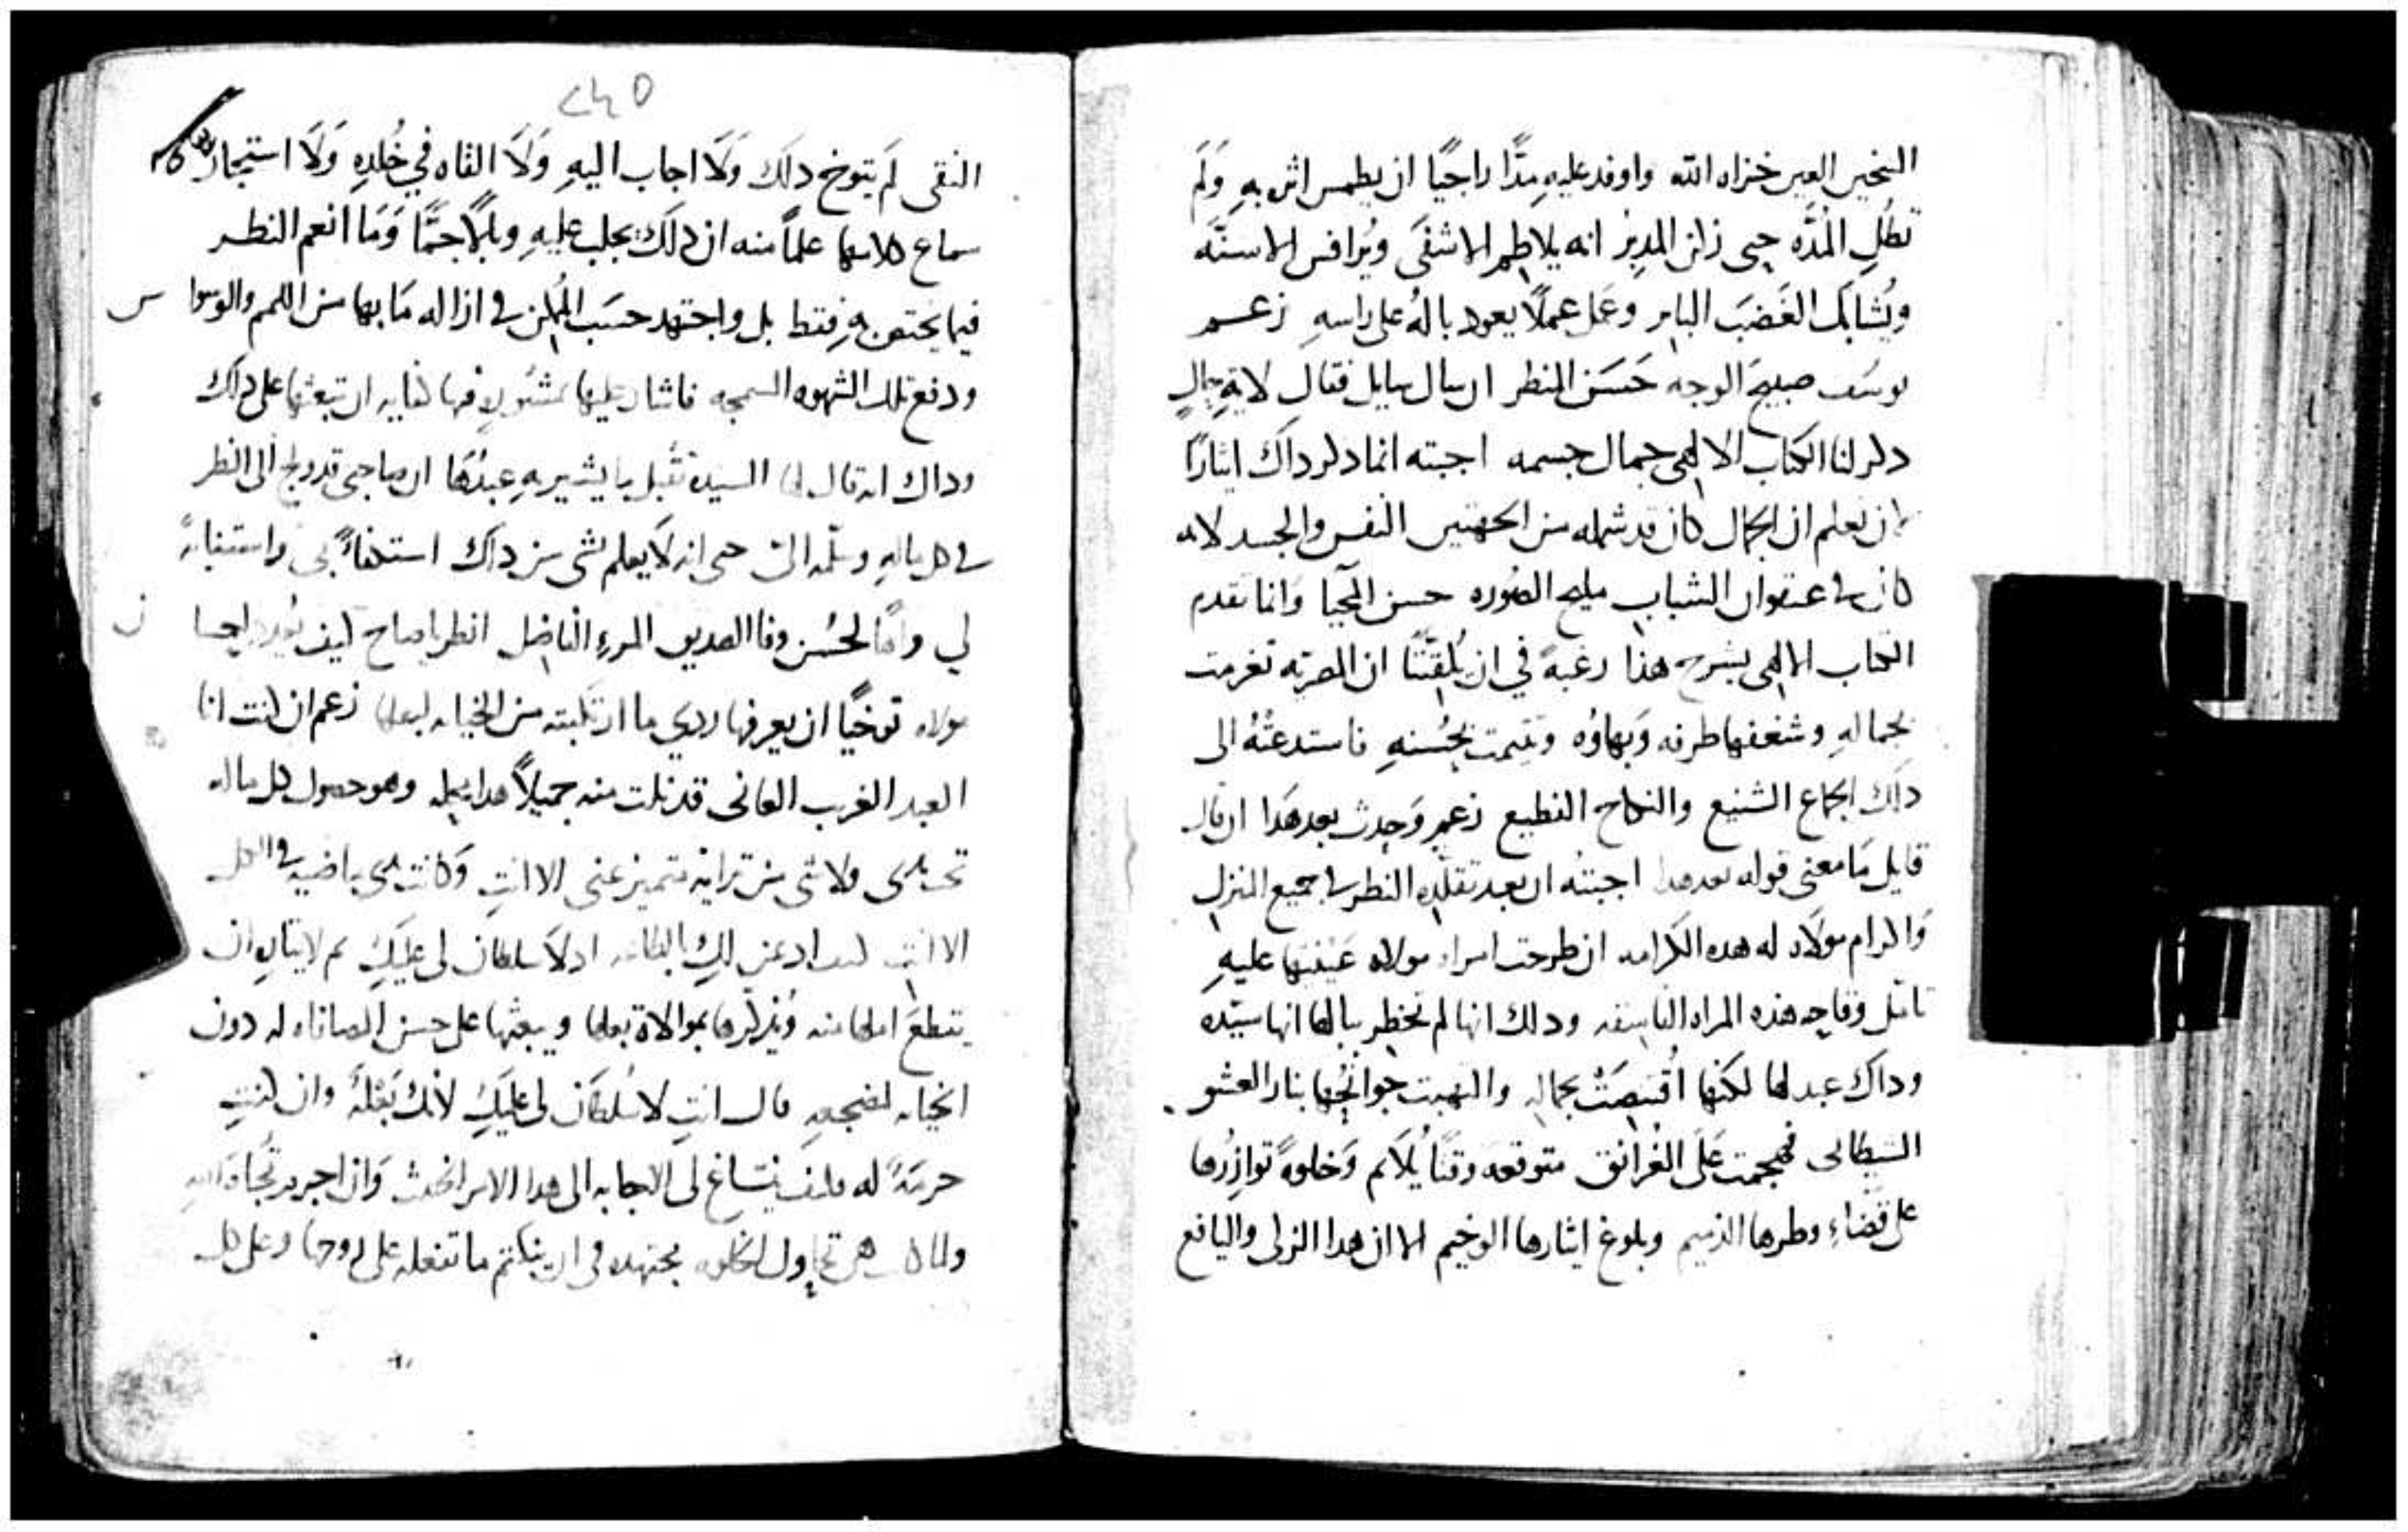 النحس العين خزاه الله واوفد عليه مدًّا راجيًا ان يطمس اثره به وَلَم
تطُلِ المُدَّه حتى زكن المدبر انه يلاطم الاشفَى ويُرافس الاسنّه
ويُشابك الغَضبَ الباتر وعَمل عملًا يعود بالهُ على راسهِ زعم
يوسَف صبيح الوجه حَسَن المنظر ان سال سايل فقال لاية حال
دكر لنا الكتاب الالهى جمال جسمه اجبته انما دكر داك ايثارًا
ان نعلم ان الجمال كان قد شمله من الجهتين النفس والجسد لانه
كان فى عنفوان الشباب مليح الصُوره حسن المُحيا وَانما تقدم
الكتاب الالهى بشرح هذا رغبةً في ان يُلقنّنا ان المصريه تغرمت
بجمالهِ وشغفها ظرفه وَبهاؤه وتيمت بحُسنهِ فاستدعتهُ الى
دلك الجماع الشنيع والنكاح الفظيع زعم وَحدث بعد هَذا ان قال
قايل مَا معنى قوله بعد هدا اجبته ان بعد تقلّده النظر فى جميع المنزل
وَاكرام مولاه له هده الكرامه ان طرحت امراه مولاه عَينيها عليهِ
تامّل وقاحه هذه المراه الفاسقه ودلك انها لم تخطر ببالها انها سيّده
وداك عبد لها لكنها اقُتنِصَتْ بجماله والتهبت جَوانحُها بنار العشق
الشيطانى فهجمت عَلَى الغُرانق متوقعه وقتًا يُلآئم وَخلوةً توازرُها
على قضاءِ وطرها الذميم وبلوغ ايثارها الوخيم الا ان هدا الزكى واليافع
٢٤٥
النقى لَم يتوخ دلك وَلَا اجاب اليهِ وَلَا القاه في خُلدِه وَلَا استجاز
سماع كلامها علمًا منه ان دلك يجلب عليهِ وبالًا جمًّا وَمَا انعم النظر
فيما يختص بهِ فقط بل واجتهد حسَب المُمكن فى ازاله مَا بها من اللمم والوسواس
ودفع تلك الشهوه السمجه فاشار عليها بمشوره فيها كفايه ان تبعثها على داك
وداك انه قال لها السيده تقبل ما يشير به عبدُها ان صاحبى قد ولج الى النظر
فى كل ماله وسلّمه الىّ حتى انه لَا يعلم بشى من داك استكفاءً بى واستنابةً
لي واهًا لحُسن وفا الصديق المرءِ الفاضل انظر يا صاح كيف يُورد احسان
مولاه توخيًا ان يعرفها ردى ما ارتكبته من الخيانه لبعلها زعم ان كنت انا
العبد الغريب العانى قد نلت منه جميلًا هدا مبلغه وهو حصول كل ماله
تحت يدى ولا شى من تراثه متميز عنى الا انتِ وَكانت يدى ماضيه فى الكل
الا انتِ ادلا سلطان لى عليكِ ثم لايثاره ان
يقطعَ املها منه وَيُذكّرها بموالاة بعلها ويبعثها على حسن المصافاه له دون
الخيانه لمضجعهِ قال انتِ لا سُلطَان لى عليكِ لانك بَعْلةً وان كنتِ
حرمةً له فكيف ينساغ لى الاجابه الى هدا الامر الخبيث وَان اجرم تُجاهَ الله
ولما كانت هى تحاول الخلوه مجتهده فى ان ينكتم ما تفعله على زوجها وعلى كل